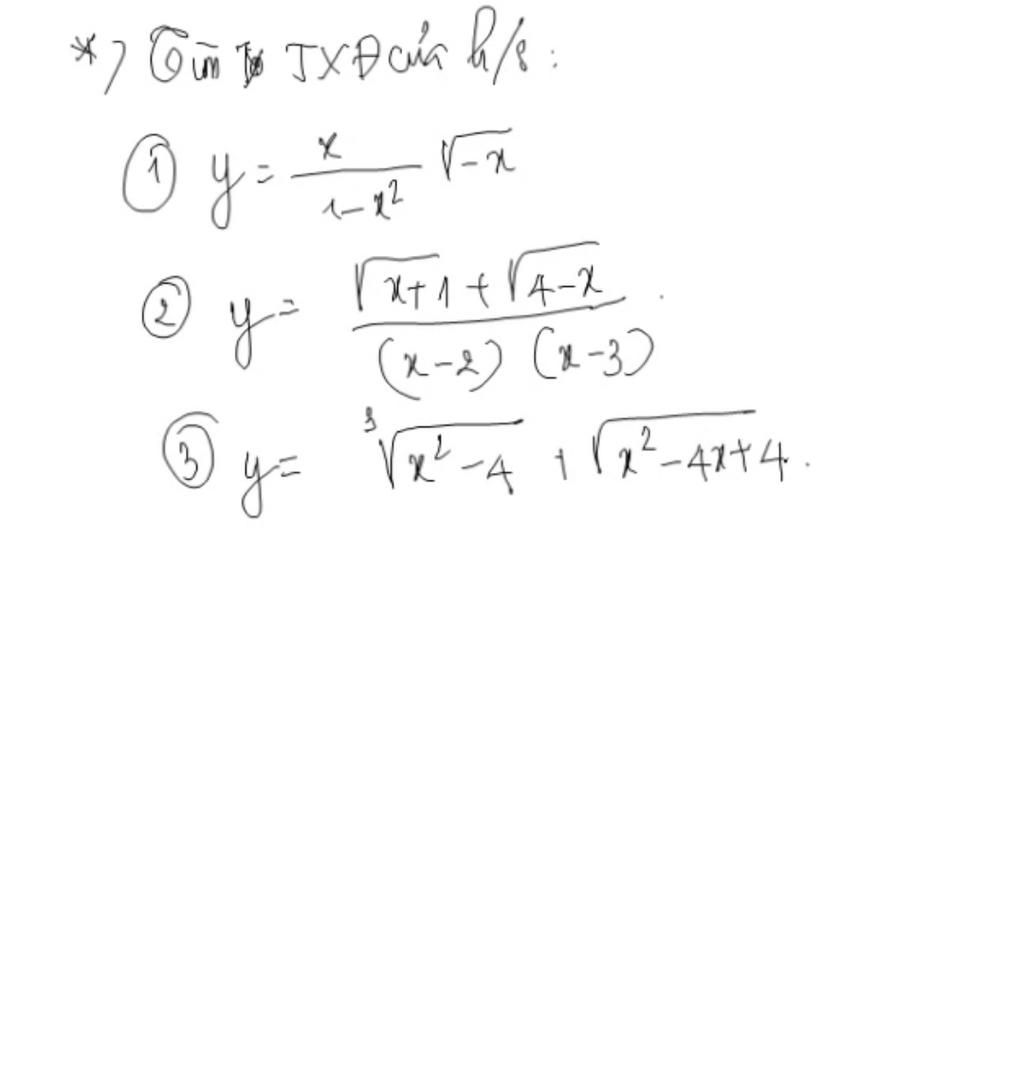 *) Tìm TXĐ của h/s:
① y = \frac{x}{1-x^2} \sqrt{-x}
② y = \frac{\sqrt{x+1} + \sqrt{4-x}}{(x-2)(x-3)}.
③ y = \sqrt[3]{x^2-4} + \sqrt{x^2-4x+4}.